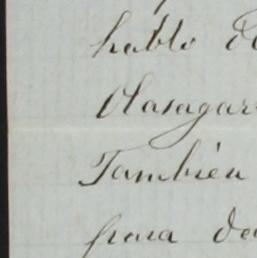 hablo de
Olasagar
También
para de